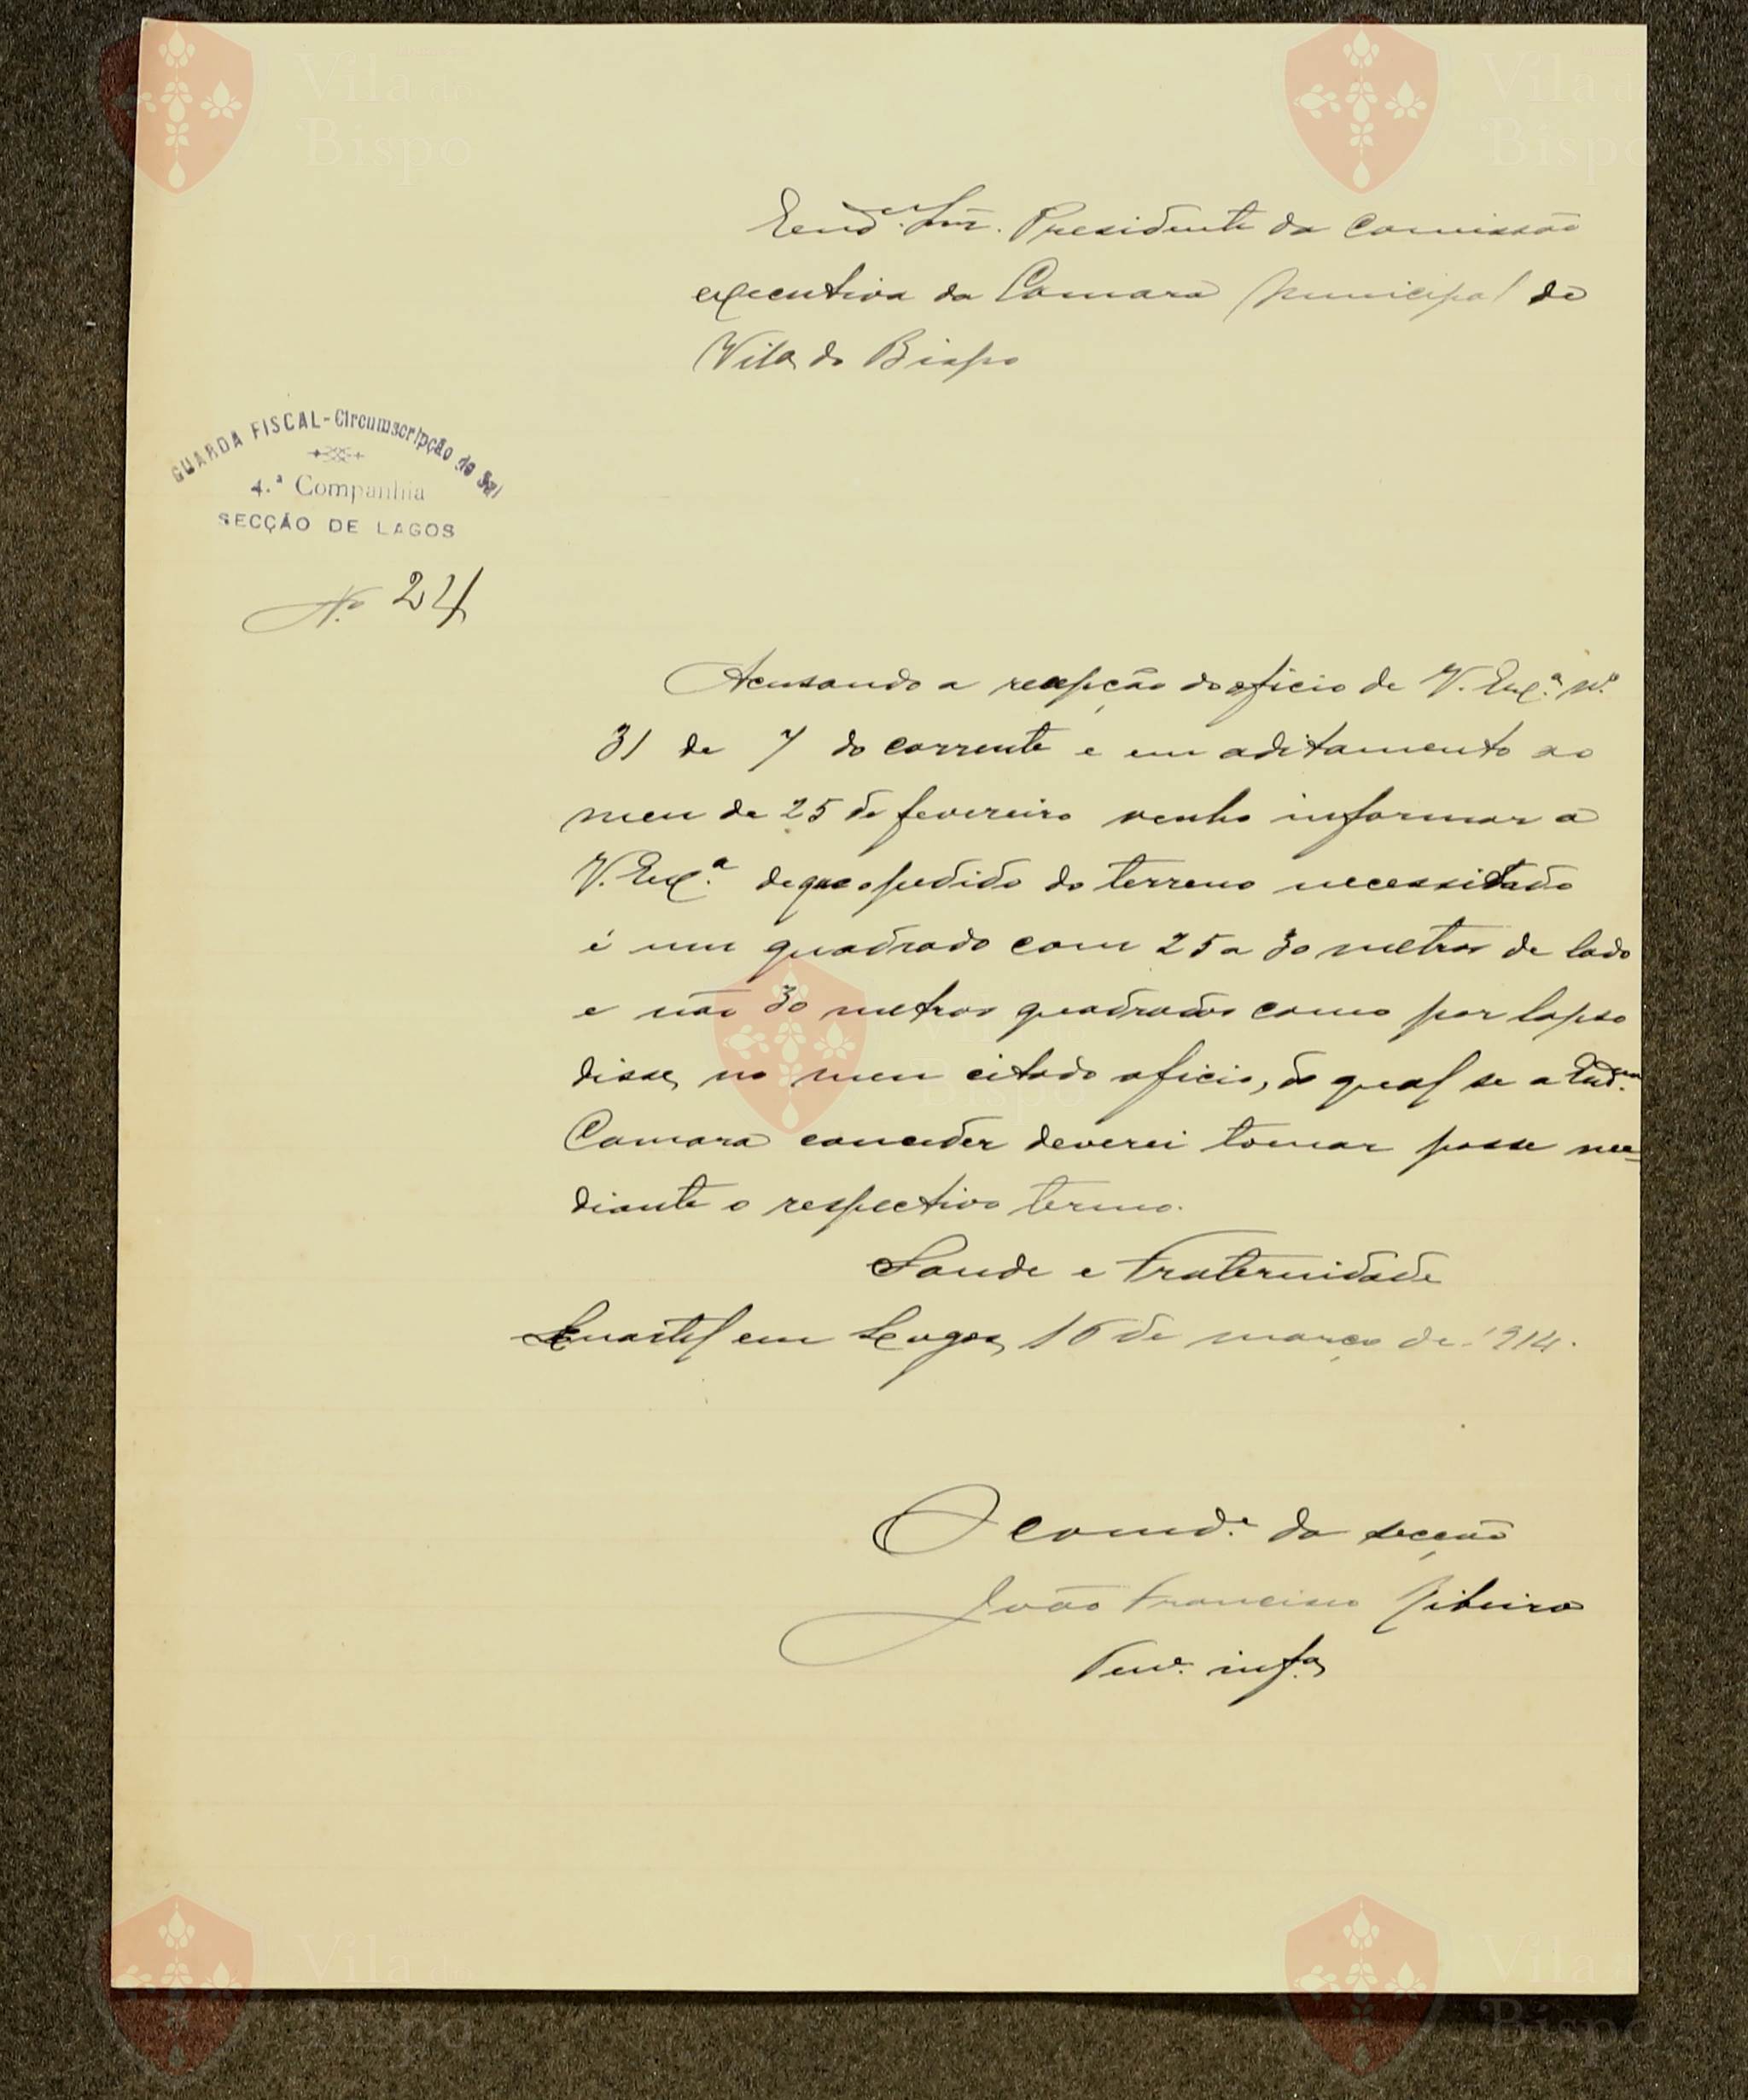 Exmo. Snr. Presidente da Comissão
executiva da Camara Municipal de
Vila do Bispo
GUARDA FISCAL - Circumscripção do Sul
4.ª Companhia
SECÇÃO DE LAGOS
N.º 24
Acusando a recepção do oficio de V. Exª. nº
31 de 7 do corrente e em aditamento ao
meu de 25 de fevereiro venho informar a
V. Exª. de que o pedido do terreno necessitado
é um quadrado com 25 a 30 metros de lado
e não 30 metros quadrados como por lapso
disse, no meu citado oficio, do qual se a
Camara conceder deverei tomar posse me-
diante o respectivo termo.
Saude e Fraternidade
Quartel em Lagos, 16 de março de 1914.
O comd.e da secção
João Francisco Ribeiro
Ten.e inf.a
Vila do
Bispo